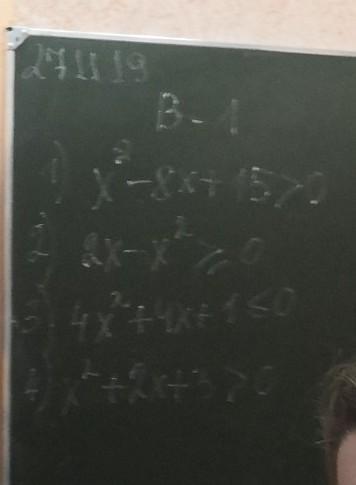 271119
B-1
1) x²-8x+15>0
2) 2x-x²≥0
3) 4x²+4x+1≤0
4) x²+2x+3>0